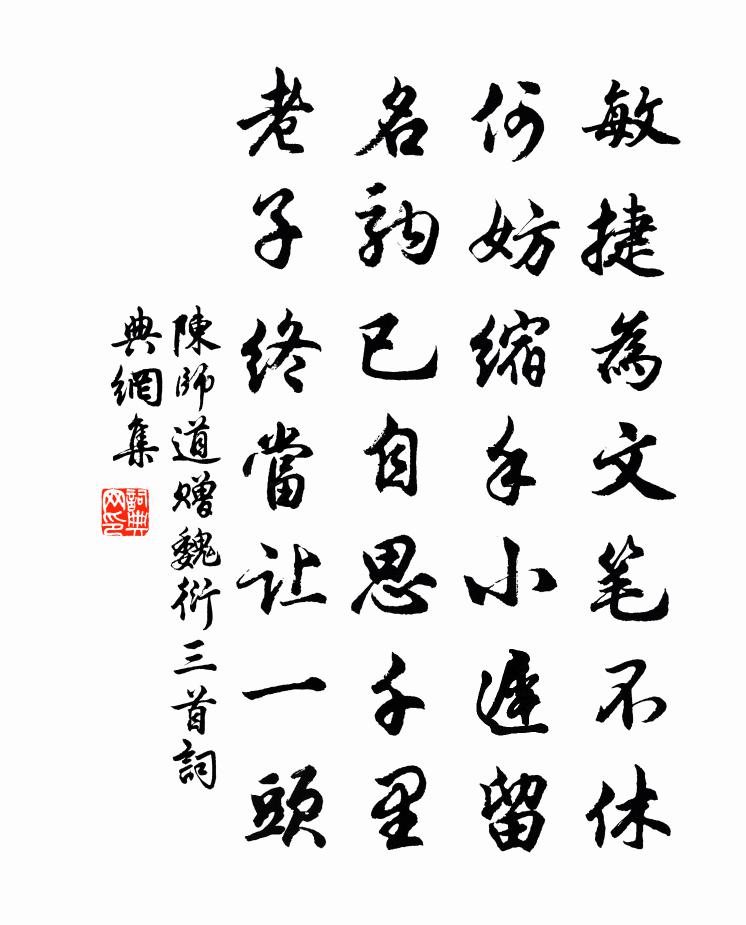 敏捷為文笔不休
何妨縮手小遲留
名駒已自思千里
老子終當让一頭
陳師道贈魏衍三首詞
典網集
詞典
网印